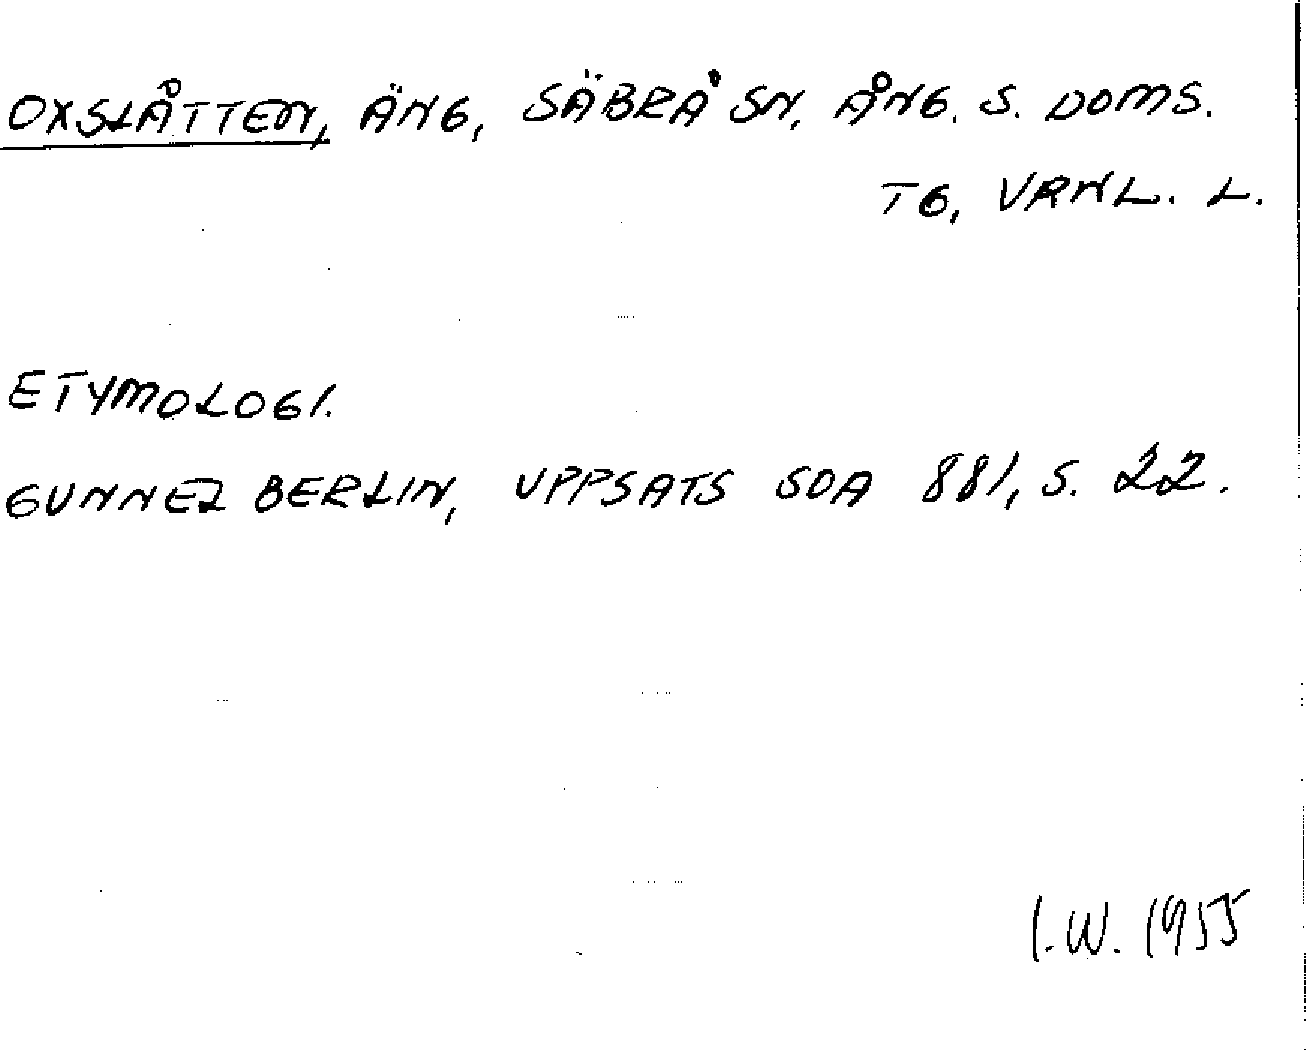 OXSLÅTTEN, ÄNG, SÄBRÅ SN, ÅNG. S. DOMS.
TG, VRNL. L.
ETYMOLOGI.
GUNNEL BERLIN, UPPSATS SOA 881, S. 22.
I.W. 1955